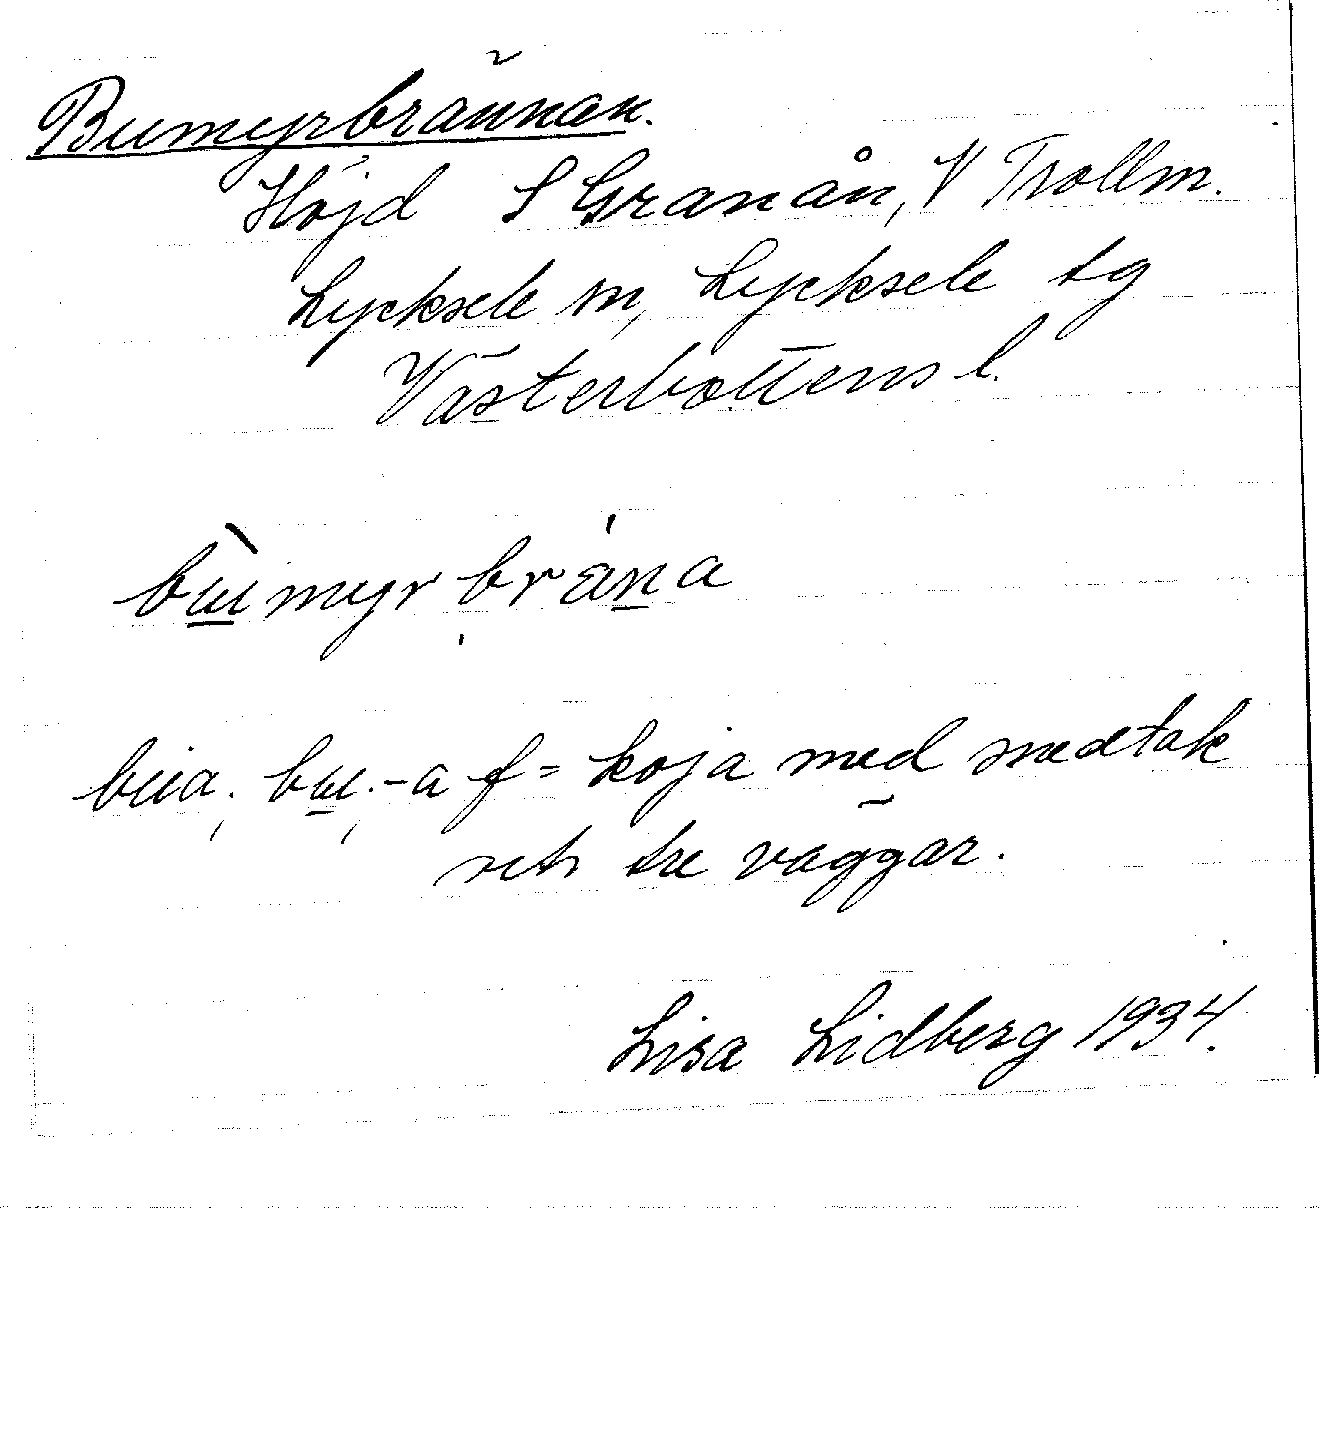 Bumyrbrännan.
Höjd S Granån, V Trollm.
Lycksele sn, Lycksele tg
Västerbottens l.
bu̲myrbräṉa
bua. bu̲.-a f = koja med snedtak
och tre väggar.
Lisa Lidberg 1934.